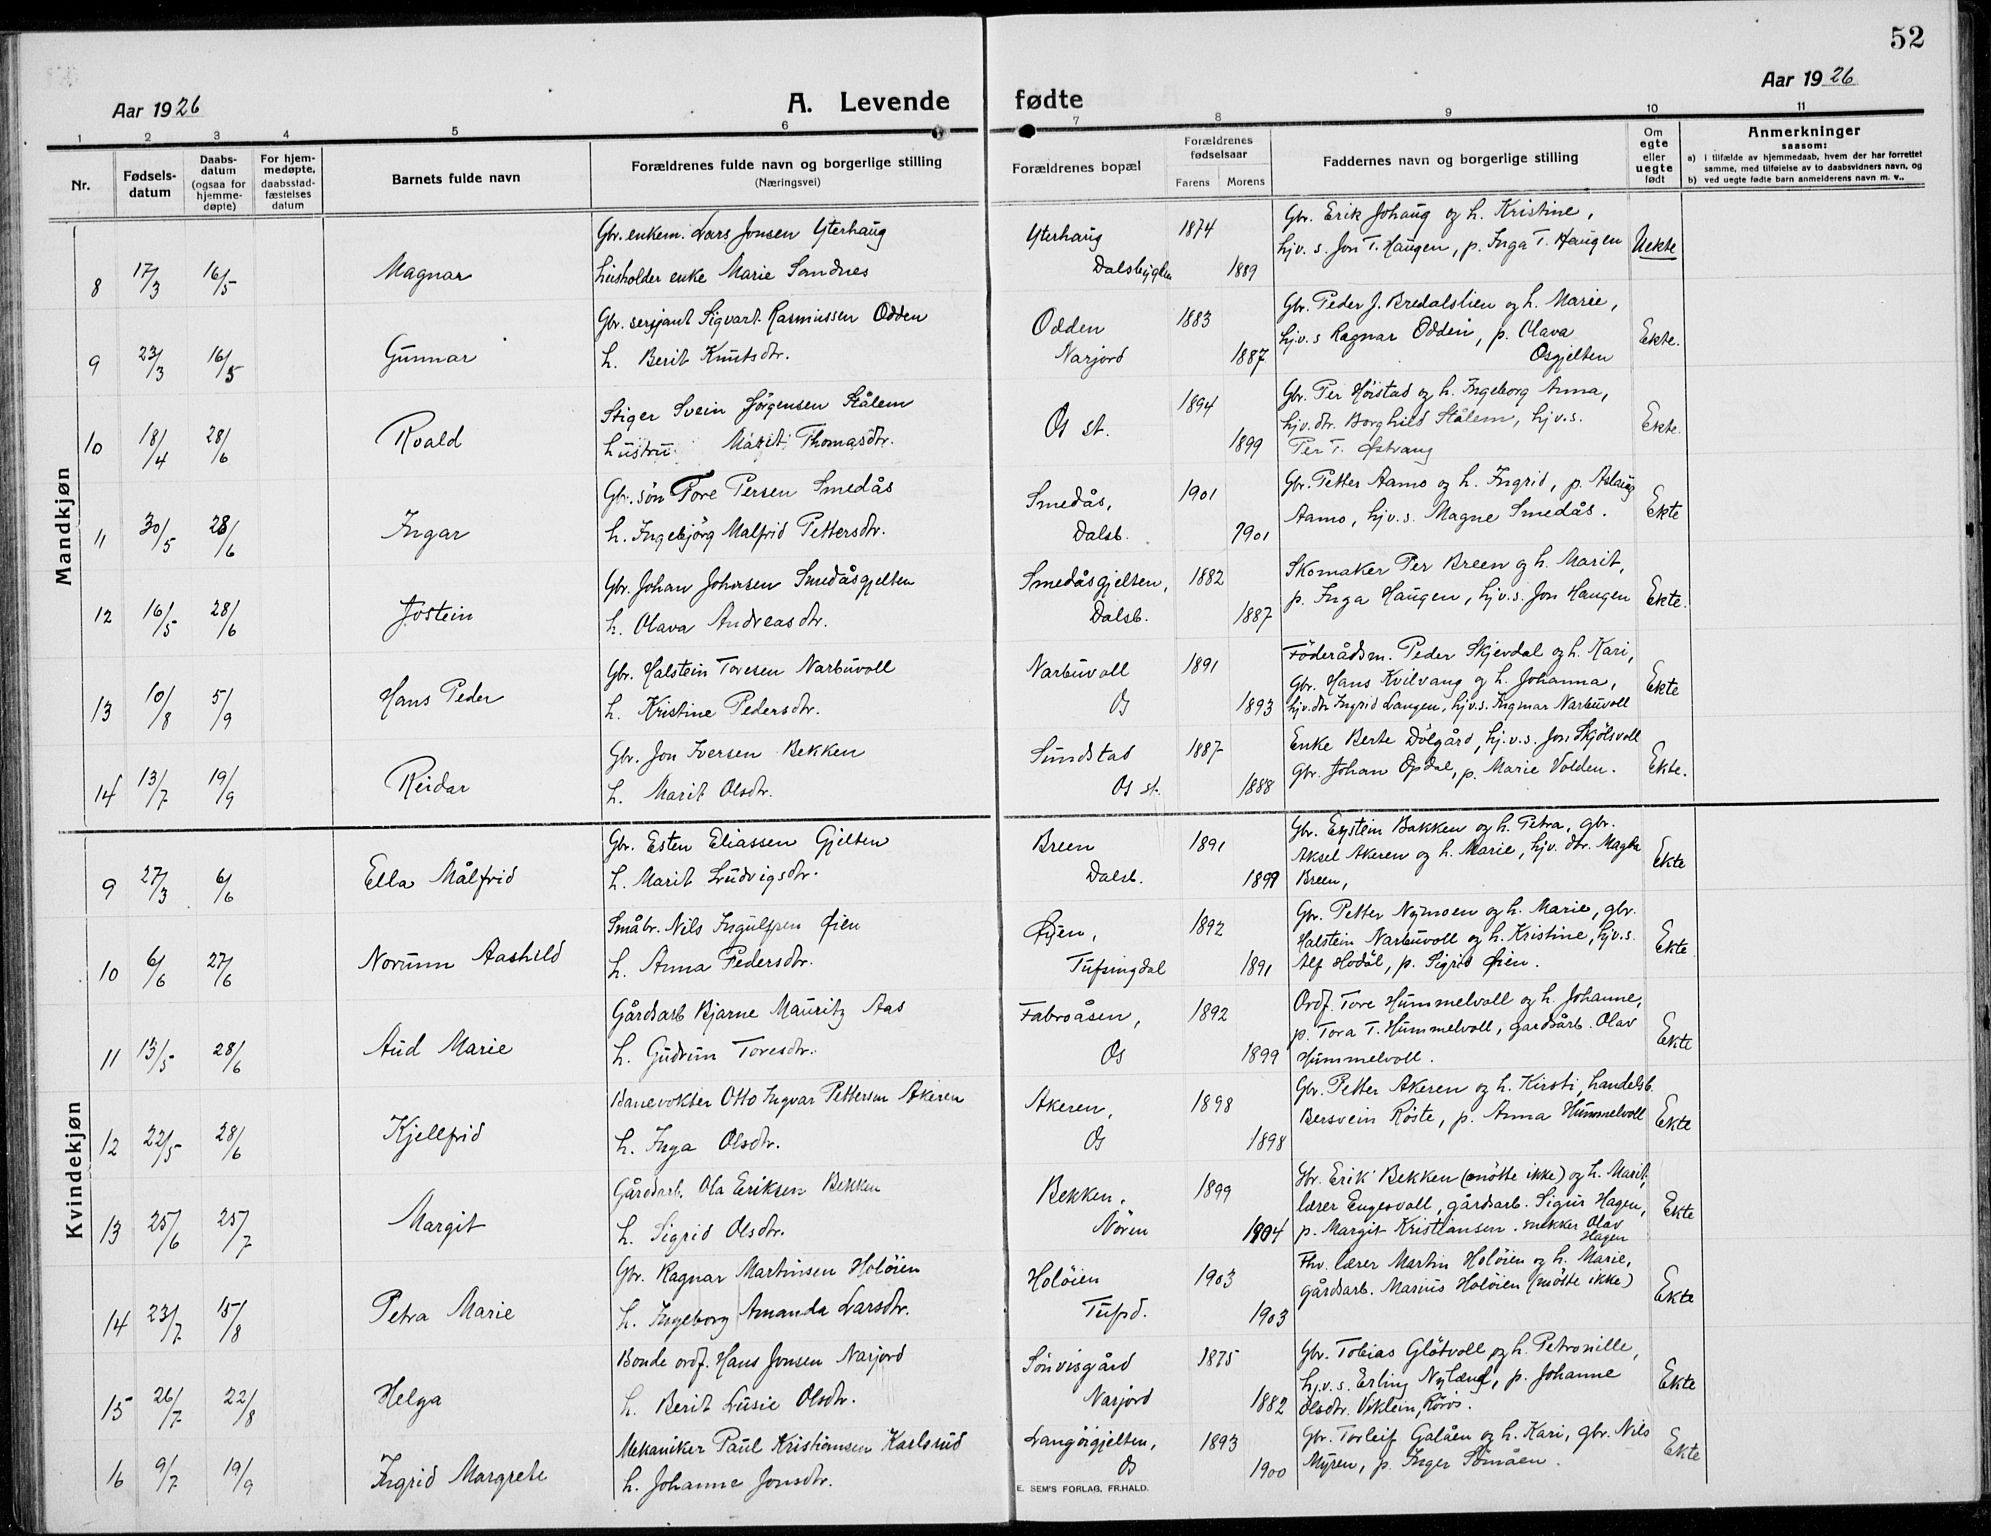 52
Aar 1926
A. Levende
fødte
Aar 1926
1 2 3 4 5 6 7 8 9 10 11
Nr.
Fødsels-
datum
Daabs-
datum
(ogsaa for
hjemme-
døpte)
For hjem-
medøpte,
daabsstad-
fæstelses
datum
Barnets fulde navn
Forældrenes fulde navn og borgerlige stilling
(Næringsvei)
Forældrenes bopæl
Forældrenes
fødselsaar
Farens Morens
Faddernes navn og borgerlige stilling
Om
egte
eller
uegte
født
Anmerkninger
saasom:
a) i tilfælde av hjemmedaab, hvem der har forrettet
samme, med tilføielse av to daabsvidners navn, og
b) ved uegte fødte barn anmelderens navn m. v..
Mandkjøn
8 17/3 16/5 Magnar
Gbr. enkem. Lars Jonsen Yterhaug
husholder enke Marie Sandnes
Yterhaug
Dalsbygden
1874
1889
Gbr. Erik Johaug og h. Kristine,
hjv. s. Jon T. Haugen, p. Inga T. Haugen
Uekte
9 23/3 16/5 Gunnar
Gbr. serjant Sigvart Rasmussen Odden
h. Berit Knutsdtr.
Odden
Narjord
1883
1887
Gbr. Peder J. Bredalslien og h. Marie,
hjv. s Ragnar Odden, p. Olava
Osgjelten
Ekte.
10 18/4 28/6 Roald
Stiger Svein Jörgensen Stålem
hustru Marit Thomasdtr.
Os st.
1894
1899
Gbr. Per Höistad og h. Ingeborg Anna,
hjv. dtr. Borghild Stålem, hjv. s.
Per T. Østvang
Ekte.
11 30/5 28/6 Ingar
Gbr. sön Tore Persen Smedås
h. Ingebjörg Malfrid Pettersdtr.
Smedås,
Dalsb.
1901
1901
Gbr. Petter Aamo og h. Ingrid, p. Aslaug
Aamo, hjv. s. Magne Smedås.
Ekte
12 16/5 28/6 Jostein
Gbr. Johan Johnsen Smedåsgjelten
h. Olava Andreasdtr.
Smedåsgjelten,
Dalsb.
1882
1887
Skomaker Per Breen og h. Marit,
p. Inga Haugen, hjv. s. Jon Haugen
Ekte.
13 10/8 5/9 Hans Peder
Gbr. Halstein Toresen Narbuvoll
h. Kristine Pedersdtr.
Narbuvoll
Os
1891
1893
Föderådsm. Peder Skjevdal og h. Kari,
Gbr. Hans Kvilvang og h. Johanna,
hjv. dtr Ingrid Langen, hjv. s. Ingmar Narbuvoll
Ekte
14 13/7 19/9 Reidar
Gbr. Jon Iversen Bekken
h. Marit Olsdtr.
Sundstad
Os st.
1887
1888
Enke Berte Dölgård, hj. v. s. Jon Skjölsvoll
Gbr. Johan Opdal, p. Marie Volden.
Ekte.
Kvindekjøn
9 27/3 6/6 Ella Målfrid
Gbr. Esten Eliassen Gjelten
h. Marit Ludvigsdtr.
Breen
Dalsb.
1891
1899
Gbr. Eystein Bakken og h. Petra, gbr.
Aksel Akeren og h. Marie, hjv. dtr. Magda
Breen,
Ekte
10 6/6 27/6 Norunn Aashild
Småbr. Nils Ingulfsen Øien
h. Anna Pedersdtr.
Øyen,
Tufsingdal
1892
1891
Gbr. Petter Nymoen og h. Marie, gbr.
Halstein Narbuvoll og h. Kristine, hjv. s.
Alf Hodöl, p. Sigrid Øien.
Ekte
11 13/5 28/6 Aud Marie
Gårdsarb Bjarne Mauritz Aas
h. Gudrun Toresdtr.
Fabroåsen,
Os
1892
1899
Ordf. Tore Hummelvoll og h. Johanne,
p. Tora T. Hummelvoll, gardsårb. Olav
Hummelvoll.
Ekte
12 22/5 28/6 Kjellfrid
Banevokter Otto Ingvar Pettersen Akeren
h. Inga Olsdtr.
Akeren,
Os
1898
1898
Gbr. Petter Akeren og h. Kirsti, handelsb.
Bersvein Röste, p. Anna Hummelvoll
Ekte
13 25/6 25/7 Margit
Gårdsarb. Ola Eriksen Bekken
h. Sigrid Olsdtr.
Bekken,
Nören
1899
1904
Gbr. Erik Bekken (mötte ikke) og h. Marit,
lærer Engesvoll, gårdsarb. Sigur Hagen,
p. Margit Kristiansen. snekker Olav
Hagen
Ekte
14 23/7 15/8 Petra Marie
Gbr. Ragnar Martinsen Holöien
h. Ingeborg Amanda Larsdtr.
Holöien
Tufsd.
1903
1903
Fhv. lærer Martin Holöien og h. Marie,
gårdsarb. Marius Holöien (mötte ikke)
Ekte
15 26/7 22/8 Helga
Bonde ordf. Hans Jonsen Narjord
h. Berit Lusie Olsdtr.
Sönvisgård
Narjord
1875
1882
Gbr. Tobias Glötvoll og h. Petronille,
hj. v. s. Erling Nylænd, p. Johanne
Olsdtr. Viklem, Röros.
Ekte
16 9/7 19/9 Ingrid Margrete
Mekaniker Paul Kristiansen Karlsrud
h. Johanne Jonsdtr.
Langöigjelten,
Os
1893
1900
Gbr. Torleif Galåen og h. Kari, gbr. Nils
Myren, p. Inger Sömåen.
Ekte
E. SEM'S FORLAG, FR.HALD.